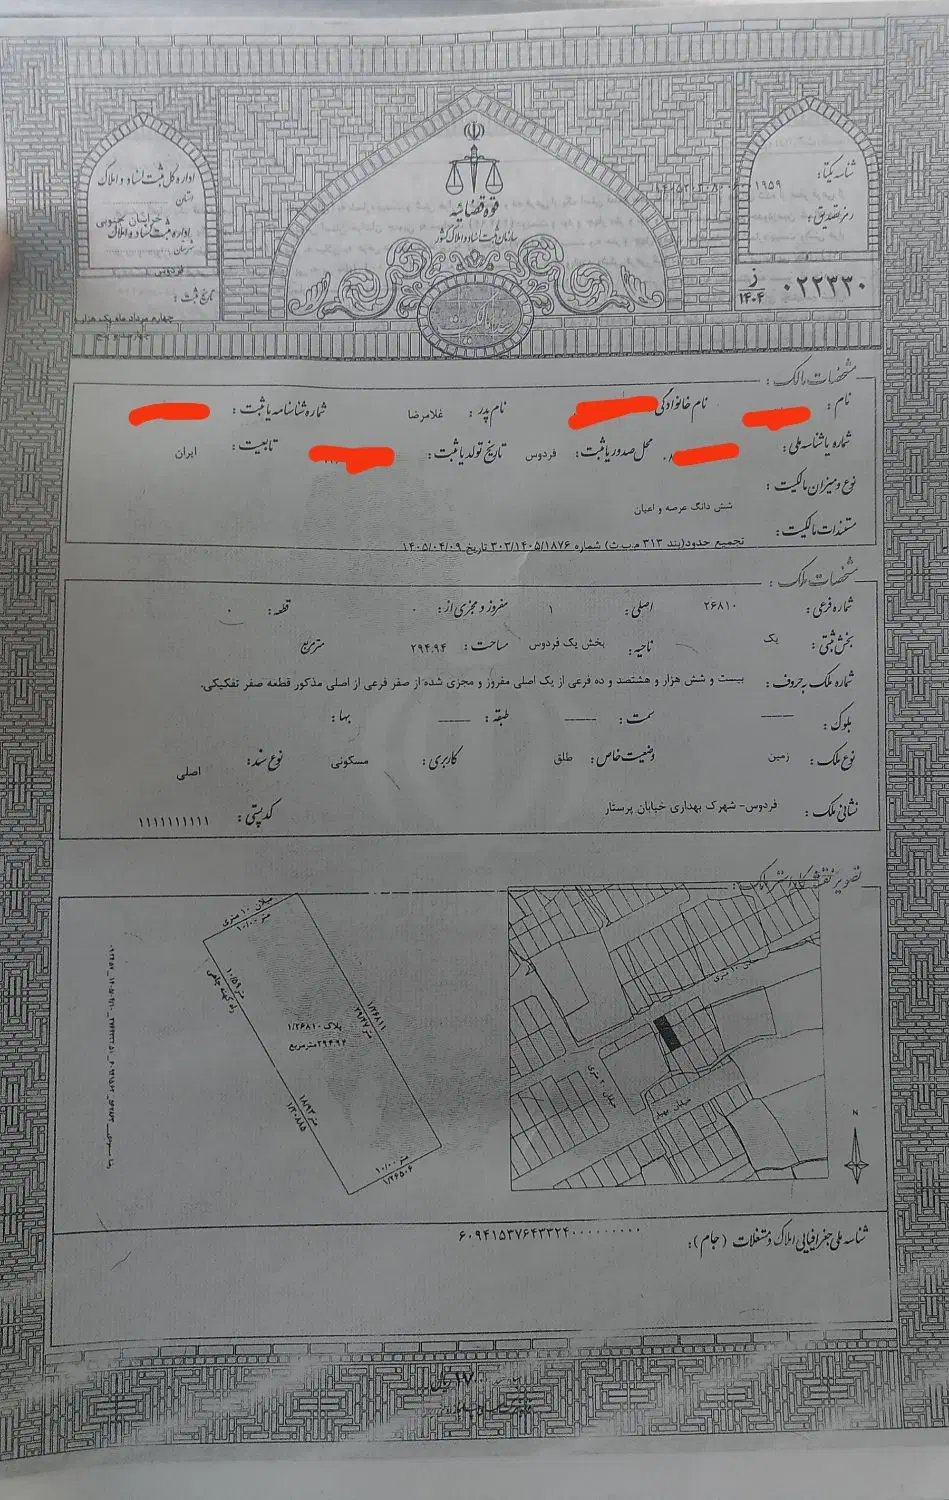 شناسه یکتا:
رمز تصدیق:
۰۲۲۳۳۰ ز ۱۴۰۴
قوه قضائیه
سازمان ثبت اسناد و املاک کشور
اداره کل ثبت اسناد و املاک
استان
خراسان جنوبی
اداره ثبت اسناد و املاک
شهرستان
فردوس
تاریخ ثبت:
چهارم مرداد ماه یک هزار
مشخصات مالک:
نام: نام خانوادگی نام پدر: غلامرضا شماره شناسنامه یا ثبت:
شماره یا شناسه ملی: محل صدور یا ثبت: فردوس تاریخ تولد یا ثبت: تابعیت: ایران
نوع و میزان مالکیت:
شش دانگ عرصه و اعیان
مستندات مالکیت:
تجمیع حدود(بند ۳۱۳ م.ب.ث) شماره ۳۰۳/۱۴۰۵/۱۸۷۶ تاریخ ۱۴۰۵/۰۴/۰۹
مشخصات ملک:
شماره فرعی: ۲۶۸۱۰ اصلی: ۱ مفروز و مجزی از: ۰ قطعه: ۰
بخش ثبتی: یک ناحیه: بخش یک فردوس مساحت: ۲۹۴.۹۴ مترمربع
شماره ملک به حروف: بیست و شش هزار و هشتصد و ده فرعی از یک اصلی مفروز و مجزی شده از صفر فرعی از اصلی مذکور قطعه صفر تفکیکی.
بلوک: —— سمت: —— طبقه: —— بها:
نوع ملک: زمین وضعیت خاص: طلق کاربری: مسکونی نوع سند: اصلی
نشانی ملک: فردوس- شهرک بهداری خیابان پرستار کدپستی: ۱۱۱۱۱۱۱۱۱۱
میلان ۱۰ متری
۱۰/۰۰ متر
۱۰/۵۹ متر
۱/۲۶۸۱۱
۲۹/۴۷ متر
پلاک ۱/۲۶۸۱۰
۲۹۴.۹۴مترمربع
۱۸/۹۳ متر
۱/۲۰۸۸۵
۱۰/۰۰ متر
۱/۲۶۵۰۶
N
شناسه ملی جغرافیایی املاک و مستغلات (جام): ۶۰۹۴۱۵۳۷۶۴۳۳۲۴۰۰۰۰۰۰۰۰۰۰